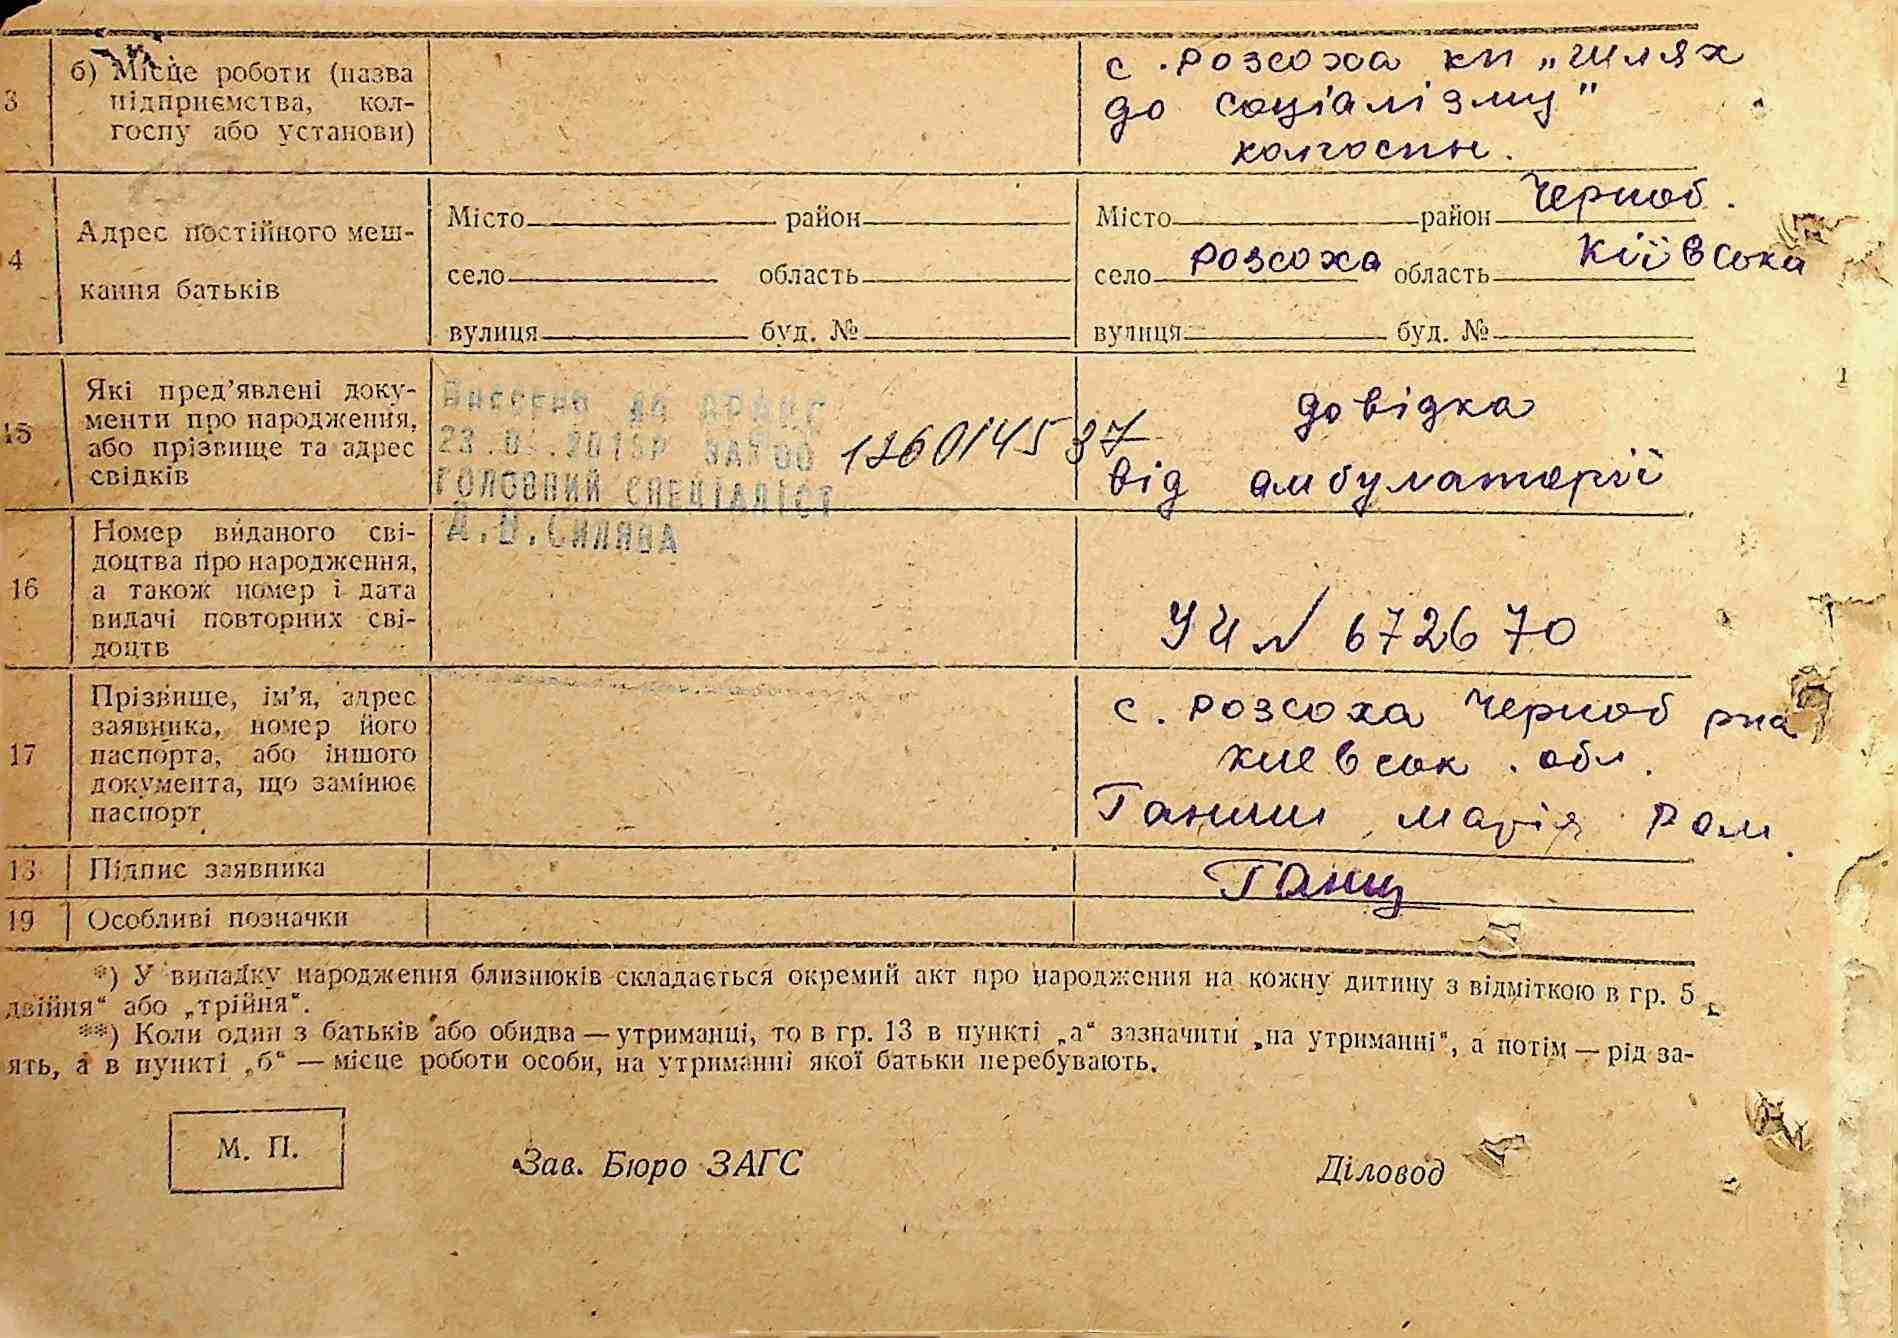 3 б) Місце роботи (назва
підприємства, кол-
госпу або установи)
с. Розсоха кп „Шлях
до соціалізму"
колгоспн.
4 Адрес постійного меш-
кання батьків
Місто район
село область
вулиця буд. №
Місто район Черноб.
село Розсоха область Кіївська
вулиця буд. №
15 Які пред'явлені доку-
менти про народження,
або прізвище та адрес
свідків
Внесено до ДРАЦС
ГОЛОВНИЙ СПЕЦІАЛІСТ
1260145 37
довідка
від амбулаторії
16 Номер виданого сві-
доцтва про народження,
а також номер і дата
видачі повторних сві-
доцтв
УЧ № 672670
17 Прізвище, ім'я, адрес
заявника, номер його
паспорта, або іншого
документа, що замінює
паспорт
с. Розсоха Черноб рна
Киевськ. обл.
Марія Ром.
18 Підпис заявника
19 Особливі позначки
*) У випадку народження близнюків складається окремий акт про народження на кожну дитину з відміткою в гр. 5
двійня" або „трійня".
**) Коли один з батьків або обидва — утриманці, то в гр. 13 в пункті „а" зазначити „на утриманні", а потім — рід за-
ять, а в пункті „б" — місце роботи особи, на утриманні якої батьки перебувають.
М. П.
Зав. Бюро ЗАГС
Діловод